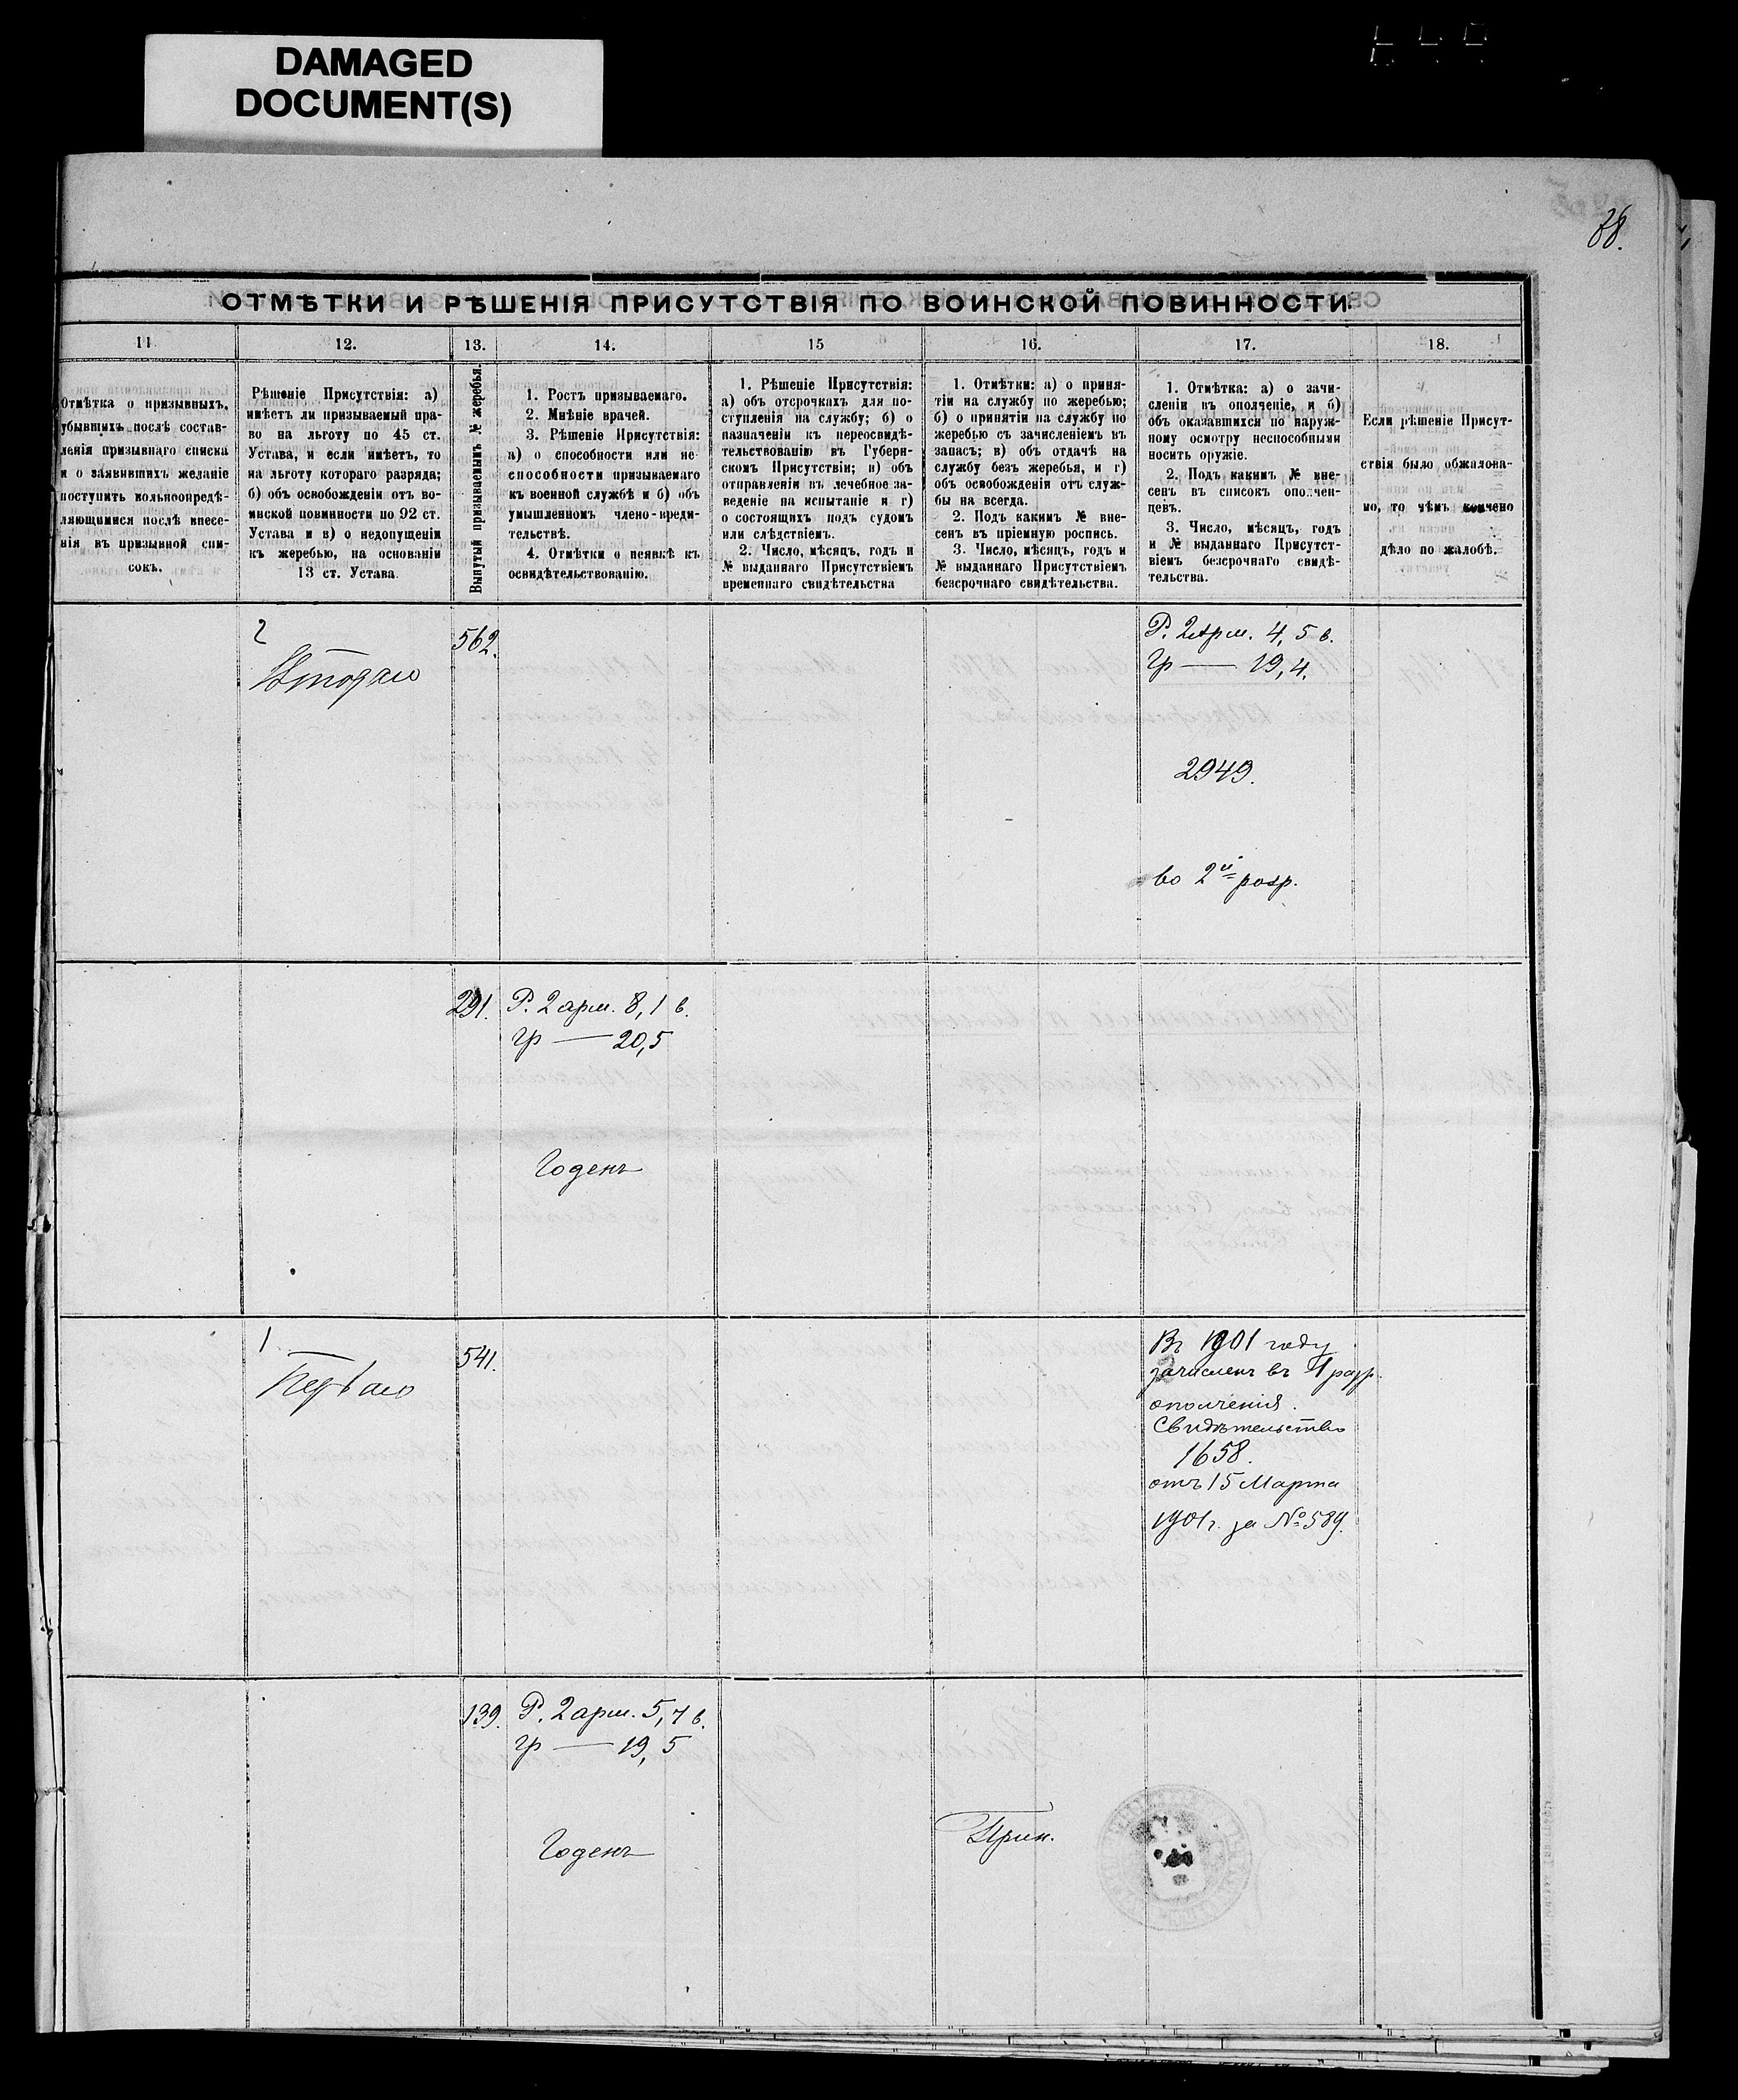 DAMAGED
DOCUMENT(S)
38.
ОТМѢТКИ И РѢШЕНІЯ ПРИСУТСТВІЯ ПО ВОИНСКОЙ ПОВИННОСТИ.
11.
12.
13.
14.
15
16.
17.
18.
Отмѣтка о призывныхъ,
убывшихъ послѣ состав-
ленія призывнаго списка
и о заявившихъ желаніе
поступить вольноопредѣ-
ляющимися послѣ внесе-
нія въ призывной спи-
сокъ.
Рѣшеніе Присутствія: а)
имѣетъ ли призываемый пра-
во на льготу по 45 ст.
Устава, и если имѣетъ, то
на льготу котораго разряда;
б) объ освобожденіи отъ во-
инской повинности по 92 ст.
Устава и в) о недопущеніи
къ жеребью, на основаніи
13 ст. Устава
Вынутый призываемымъ № жеребья.
1. Ростъ призываемаго.
2. Мнѣніе врачей.
3. Рѣшеніе Присутствія:
а) о способности или не-
способности призываемаго
къ военной службѣ и б) объ
умышленномъ члено-вреди-
тельствѣ.
4. Отмѣтки о неявкѣ къ
освидѣтельствованію.
1. Рѣшеніе Присутствія:
а) объ отсрочкахъ для по-
ступленія на службу; б) о
назначеніи къ переосвидѣ-
тельствованію въ Губерн-
скомъ Присутствіи; в) объ
отправленіи въ лечебное за-
веденіе на испытаніе и г)
о состоящихъ подъ судомъ
или слѣдствіемъ.
2. Число, мѣсяцъ, годъ и
№ выданнаго Присутствіемъ
временнаго свидѣтельства
1. Отмѣтки: а) о приня-
тіи на службу по жеребью;
б) о принятіи на службу по
жеребью съ зачисленіемъ въ
запасъ; в) объ отдачѣ на
службу безъ жеребья, и г)
объ освобожденіи отъ служ-
бы на всегда.
2. Подъ какимъ № вне-
сенъ въ пріемную роспись.
3. Число, мѣсяцъ, годъ и
№ выданнаго Присутствіемъ
безсрочнаго свидѣтельства.
1. Отмѣтка: а) о зачи-
сленіи въ ополченіе, и б)
объ оказавшихся по наруж-
ному осмотру неспособными
носить оружіе.
2. Подъ какимъ № вне-
сенъ въ списокъ ополчен-
цевъ.
3. Число, мѣсяцъ, годъ
и № выданнаго Присутст-
віемъ безсрочнаго свидѣ-
тельства.
Если рѣшеніе Присут-
ствія было обжалова-
но, то чѣмъ кончено
дѣло по жалобѣ.
2
Втораго
562.
Р. 2 арш. 4,5 в.
гр — 19,4.
2949.
во 2й разр.
291.
Р. 2 арш. 8,1 в.
гр — 20,5
Годенъ
1
Перваго
541.
Въ 1901 году
зачисленъ въ 1 разр.
ополченія.
Свидѣтельство
1658.
отъ 15 Марта
1901 г. за № 589.
139.
Р. 2 арш. 5,7 в.
гр — 19,5
Годенъ
Прин.